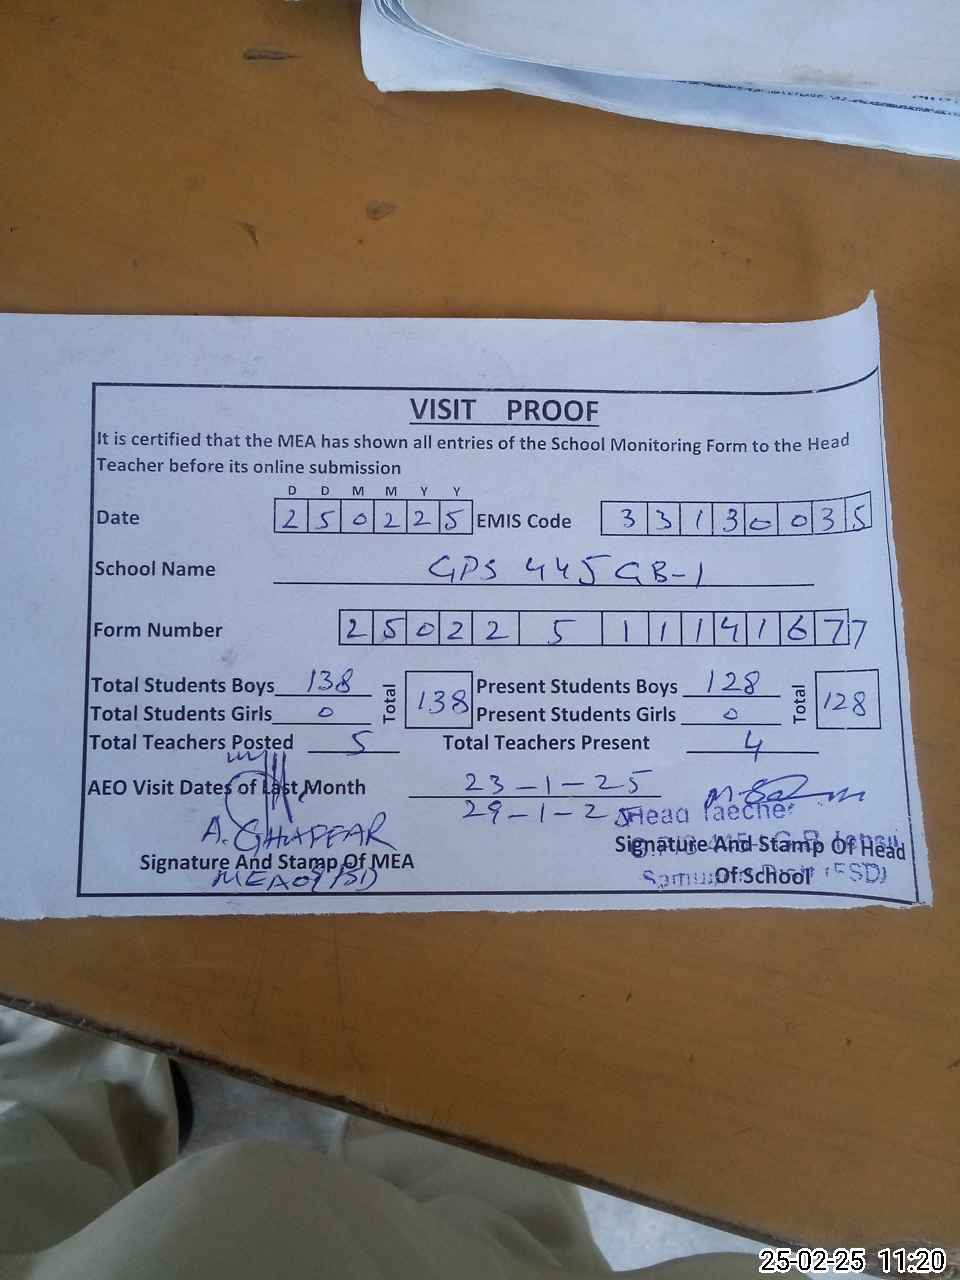 VISIT PROOF
It is certified that the MEA has shown all entries of the School Monitoring Form to the Head
Teacher before its online submission
D D M M Y Y
Date 2 5 0 2 2 5 EMIS Code 3 3 1 3 0 0 3 5
School Name GPS 445 GB-1
Form Number 2 5 0 2 2 5 1 1 1 4 1 6 7 7
Total Students Boys 138 Total 138 Present Students Boys 128 Total 128
Total Students Girls 0 Present Students Girls 0
Total Teachers Posted 5 Total Teachers Present 4
AEO Visit Dates of Last Month 23-1-25
29-1-25
Head Taecher
A. GHAFFAR
Signature And Stamp Of MEA Signature And Stamp Of Head
Of School
(FSD)
25-02-25 11:20